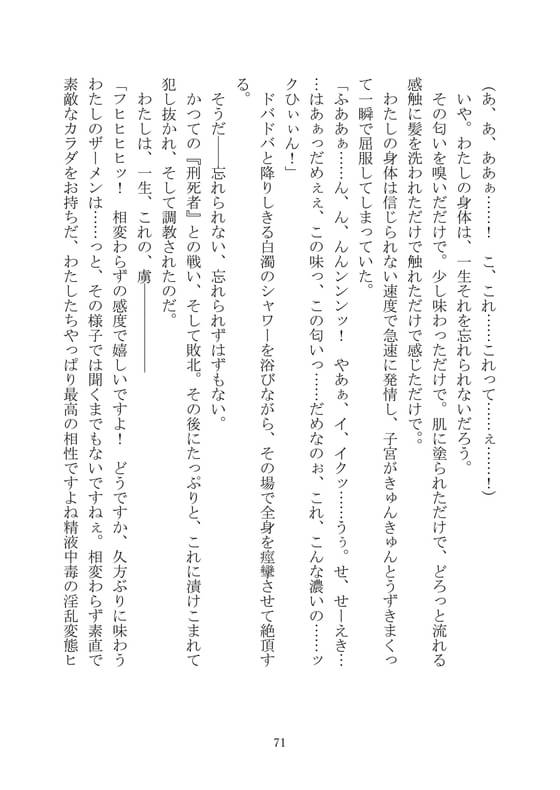 (あ、あ、ああぁ……！　こ、これ……これって……ぇ……！)
いや。わたしの身体は、一生それを忘れられないだろう。
その匂いを嗅いだだけで。少し味わっただけで。肌に塗られただけで、どろっと流れる
感触に髪を洗われただけで触れただけで感じただけで。。
わたしの身体は信じられない速度で急速に発情し、子宮がきゅんきゅんとうずきまくっ
て一瞬で屈服してしまっていた。
「ふああぁ……ん、ん、んんンンンッ！　やあぁ、イ、イクッ……うぅ。せ、せーえき…
…はあぁっだめぇぇ、この味っ、この匂いっ……だめなのぉ、これ、こんな濃いの……ッ
クひぃぃん！」
ドバドバと降りしきる白濁のシャワーを浴びながら、その場で全身を痙攣させて絶頂す
る。
そうだ――忘れられない、忘れられずはずもない。
かつての『刑死者』との戦い、そして敗北。その後にたっぷりと、これに漬けこまれて
犯し抜かれ、そして調教されたのだ。
わたしは、一生、これの、虜――――
「フヒヒヒヒッ！　相変わらずの感度で嬉しいですよ！　どうですか、久方ぶりに味わう
わたしのザーメンは……っと、その様子では聞くまでもないですねぇ。相変わらず素直で
素敵なカラダをお持ちだ、わたしたちやっぱり最高の相性ですよね精液中毒の淫乱変態ヒ
71